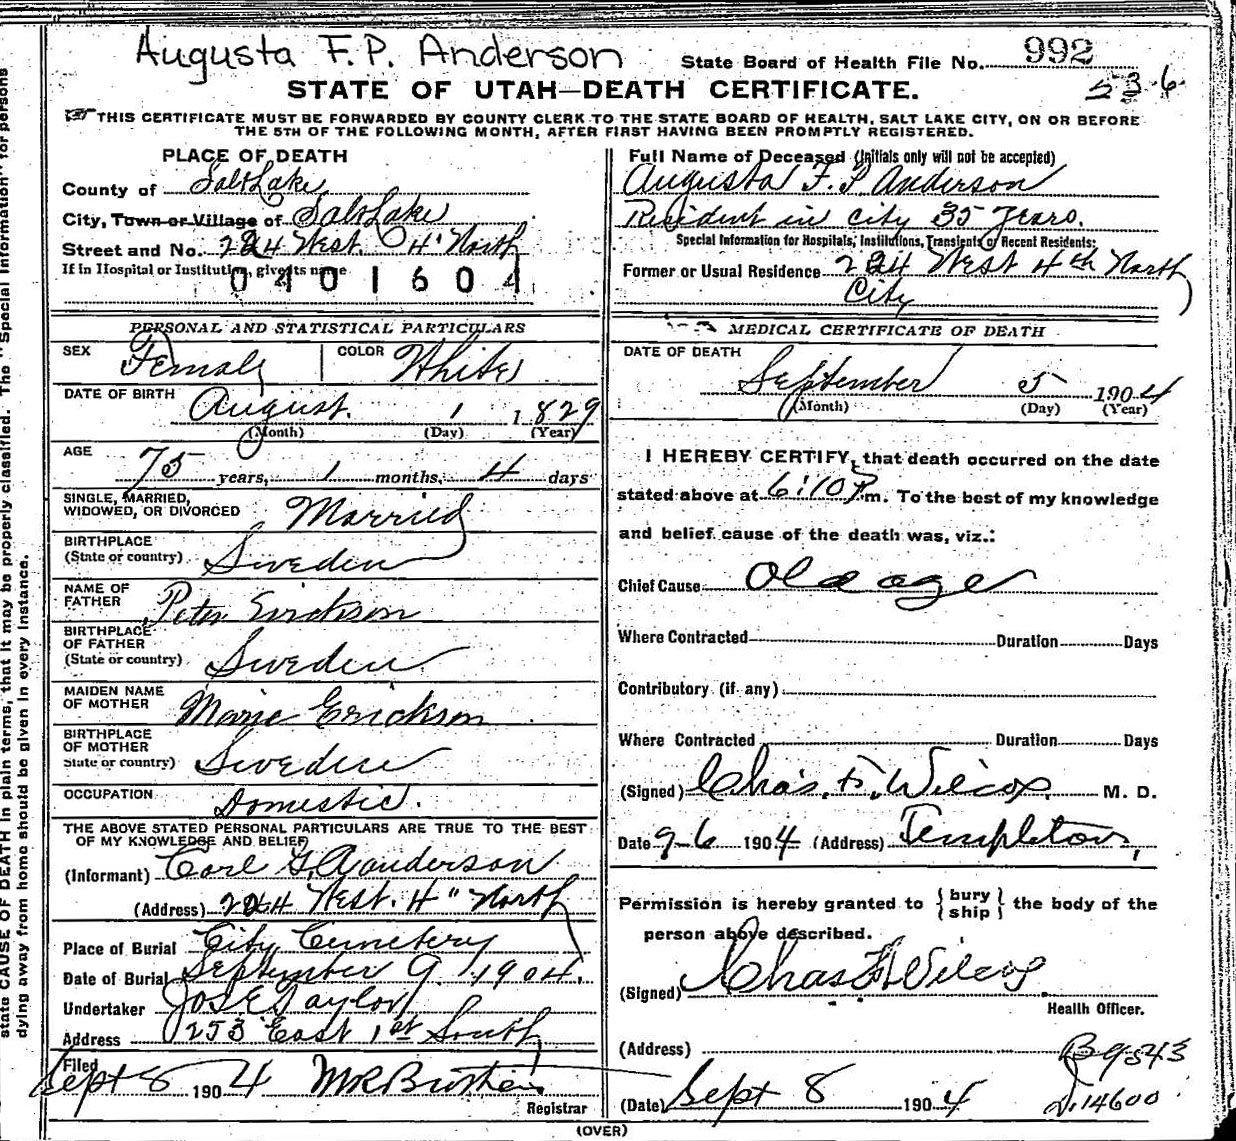 Augusta F.P. Anderson
State Board of Health File No. 992
536
STATE OF UTAH—DEATH CERTIFICATE.
THIS CERTIFICATE MUST BE FORWARDED BY COUNTY CLERK TO THE STATE BOARD OF HEALTH, SALT LAKE CITY, ON OR BEFORE
THE 5TH OF THE FOLLOWING MONTH, AFTER FIRST HAVING BEEN PROMPTLY REGISTERED.
state CAUSE OF DEATH in plain terms, that it may be properly classified. The "Special Information" for persons
dying away from home should be given in every instance.
PLACE OF DEATH
County of Salt Lake
City, Town or Village of Salt Lake
Street and No. 224 West 4" North
If in Hospital or Institution, give its name
0401604
Full Name of Deceased (Initials only will not be accepted)
Augusta F. P Anderson
Resident in city 35 Years.
Special Information for Hospitals, Institutions, Transients or Recent Residents:
Former or Usual Residence 224 West 4th North
City
PERSONAL AND STATISTICAL PARTICULARS
SEX Female COLOR White
DATE OF BIRTH August 1 1829
(Month) (Day) (Year)
AGE 75 years, 1 months, 4 days
SINGLE, MARRIED,
WIDOWED, OR DIVORCED Married
BIRTHPLACE
(State or country) Sweden
NAME OF
FATHER Peter Erickson
BIRTHPLACE
OF FATHER
(State or country) Sweden
MAIDEN NAME
OF MOTHER Marie Erickson
BIRTHPLACE
OF MOTHER
State or country) Sweden
OCCUPATION Domestic.
THE ABOVE STATED PERSONAL PARTICULARS ARE TRUE TO THE BEST
OF MY KNOWLEDGE AND BELIEF
(Informant) Carl G. Anderson
(Address) 224 West. 4" North
Place of Burial City Cemetery
Date of Burial September 9 1904.
Undertaker Jos E Taylor
Address 253 East 1st South
Filed Sept 8 1904
Registrar
MEDICAL CERTIFICATE OF DEATH
DATE OF DEATH
September 5 1904
(Month) (Day) (Year)
I HEREBY CERTIFY, that death occurred on the date
stated above at 6:10 P.m. To the best of my knowledge
and belief cause of the death was, viz.:
Chief Cause Old age
Where Contracted Duration Days
Contributory (if any)
Where Contracted Duration Days
(Signed) Chas. F. Wilcox. M. D.
Date 9-6 1904 (Address) Templeton,
Permission is hereby granted to { bury ship } the body of the
person above described.
(Signed) Chas F Wilcox
Health Officer.
(Address)
B 9543
(Date) Sept 8 1904
14600
(OVER)